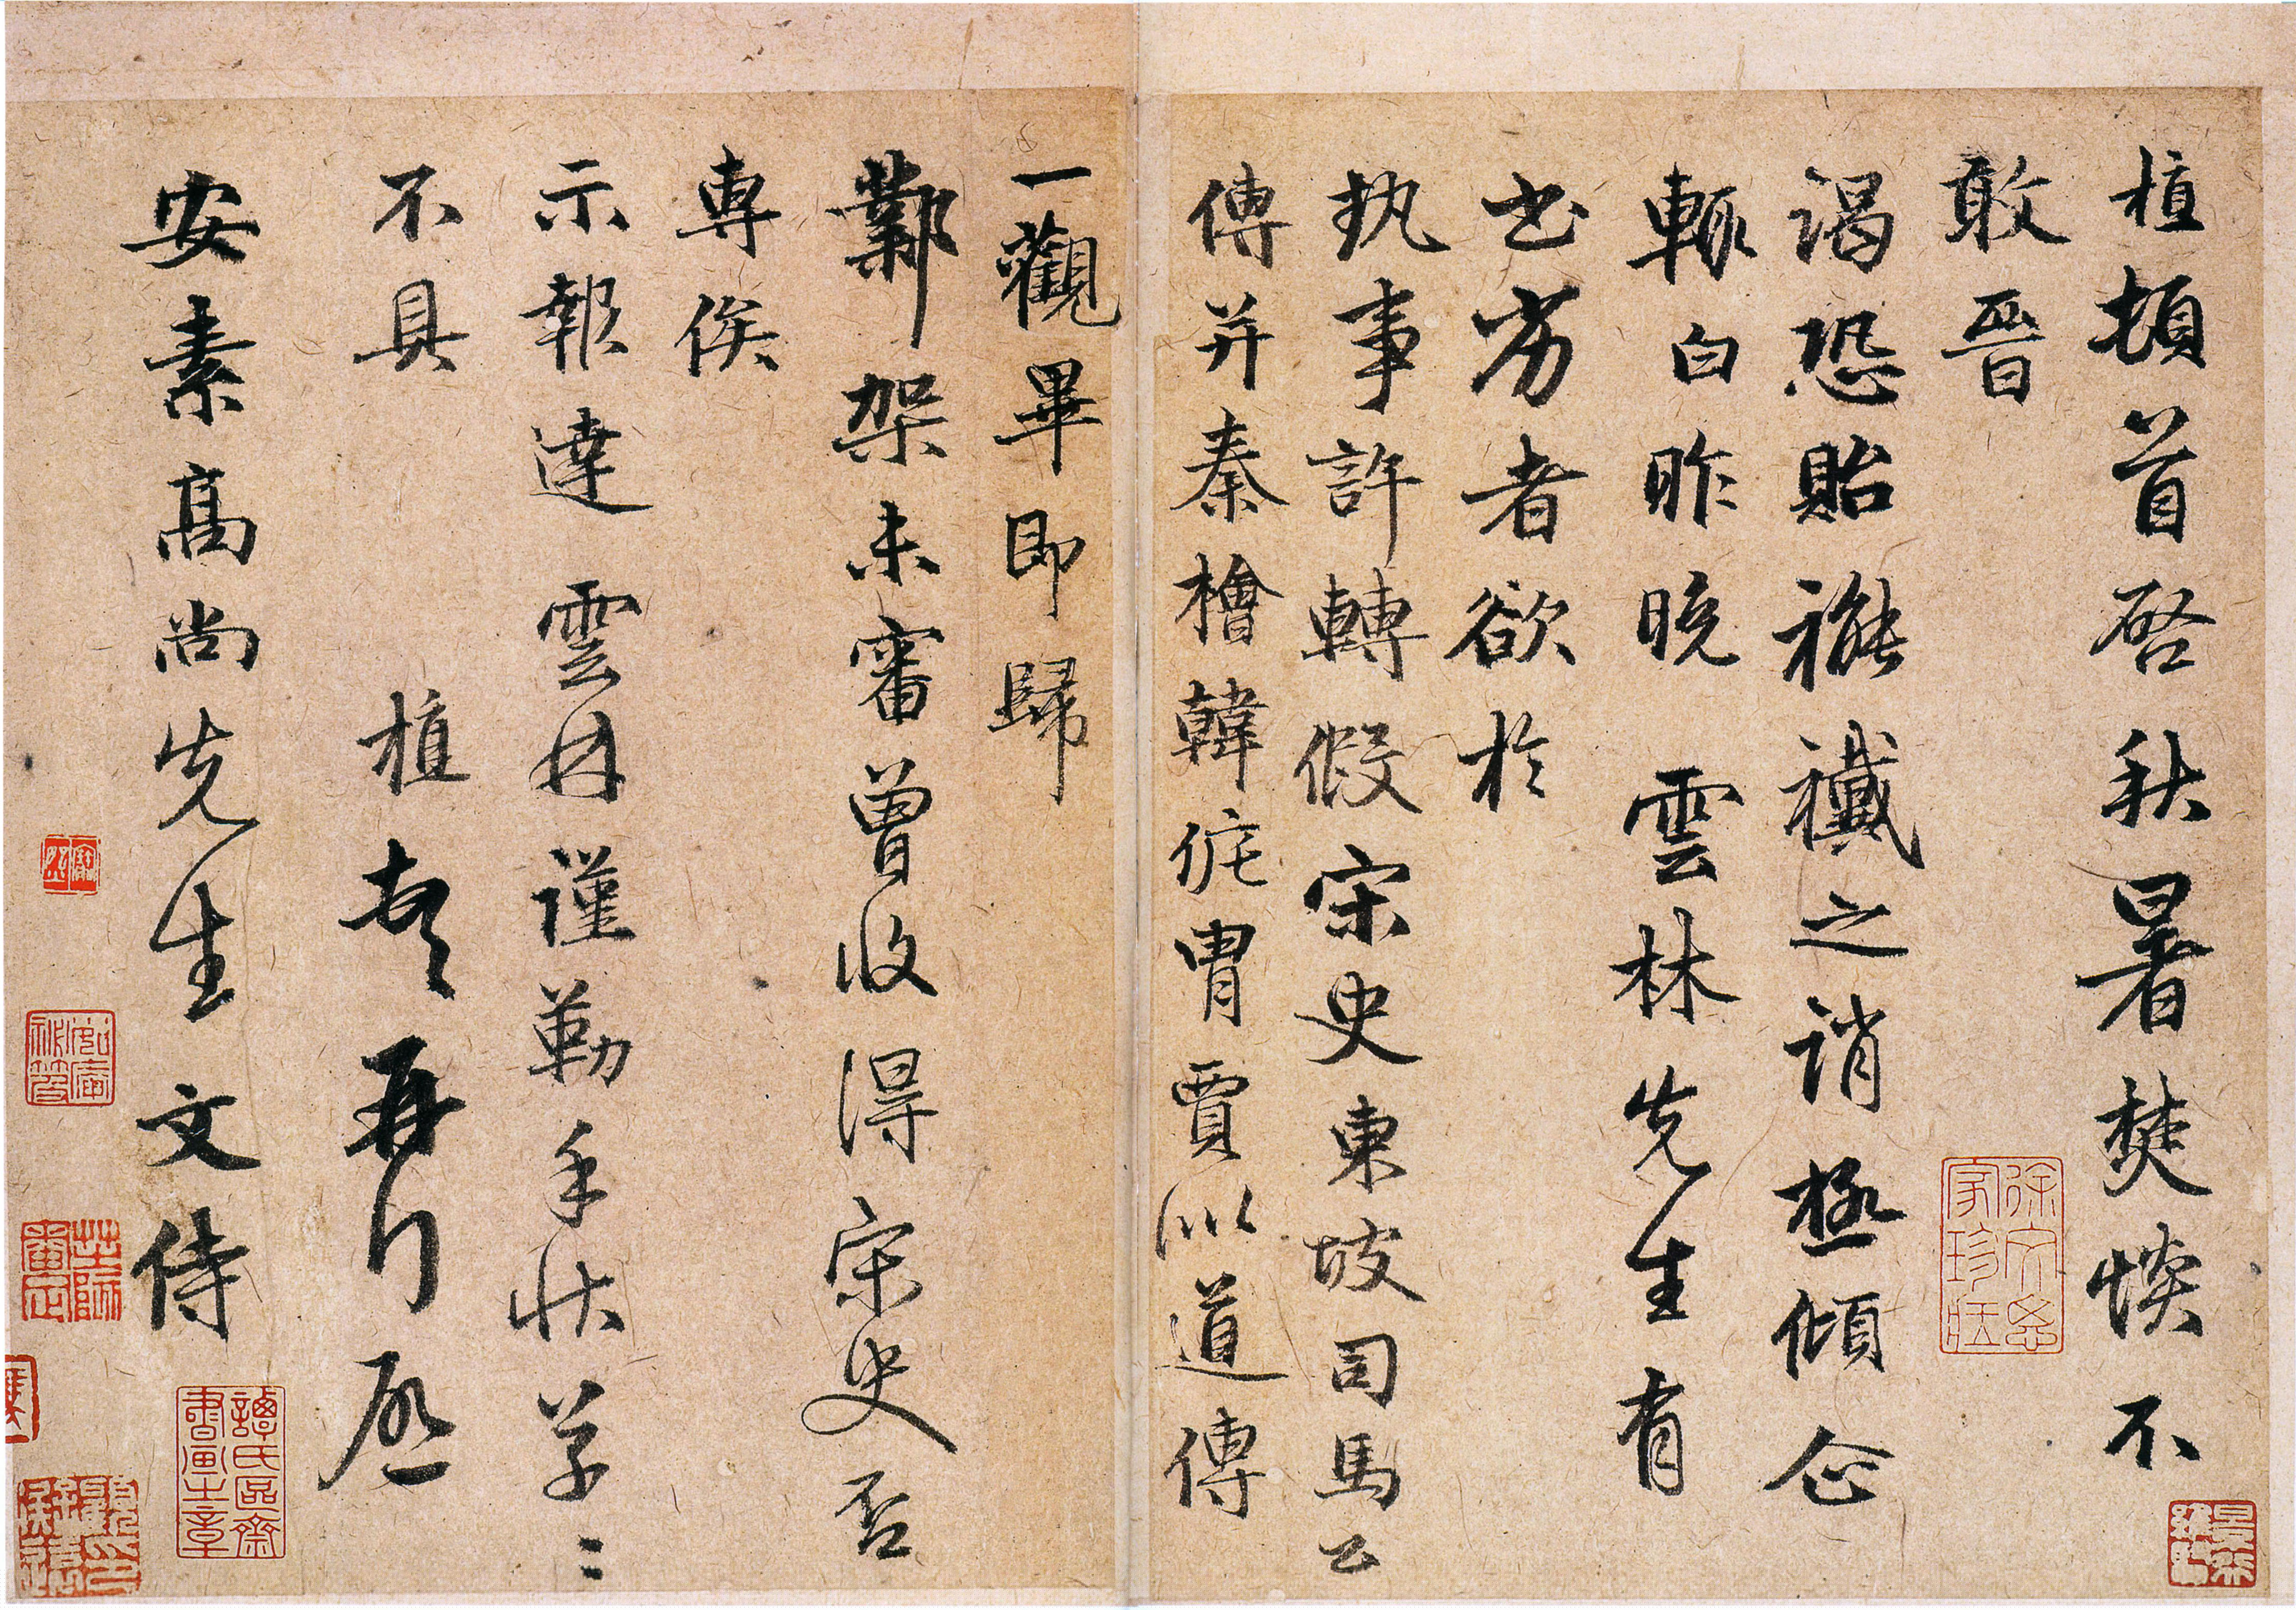 植頓首啓秋暑焚惔不
敢晉
謁恐貽褦襶之誚極傾企
輒白昨晚雲林先生有
書劣者欲於
執事許轉假宋史東坡司馬公
傳并秦檜韓侂冑賈似道傳
一觀畢即歸
鄴架未審曾收得宋史否
專俟
示報達雲林謹勒手狀草〻
不具 植頓首再行啓
安素高尚先生文侍